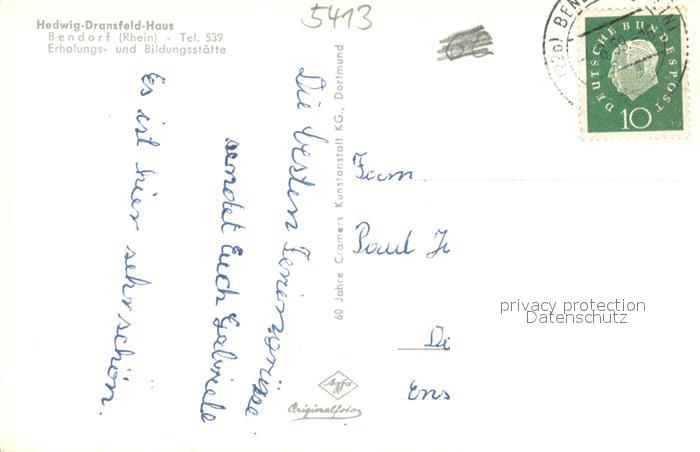 5413
Hedwig-Dransfeld-Haus
Bendorf (Rhein) - Tel. 539
Erholungs- und Bildungsstätte
DEUTSCHE BUNDESPOST
10
Die besten Feriengrüsse
sendet Euch Gabriele
Es ist hier sehr schön.
60 Jahre Cramers Kunstanstalt KG., Dortmund
Fam.
Paul
privacy protection
Datenschutz
Ens
Agfa
Originalfoto